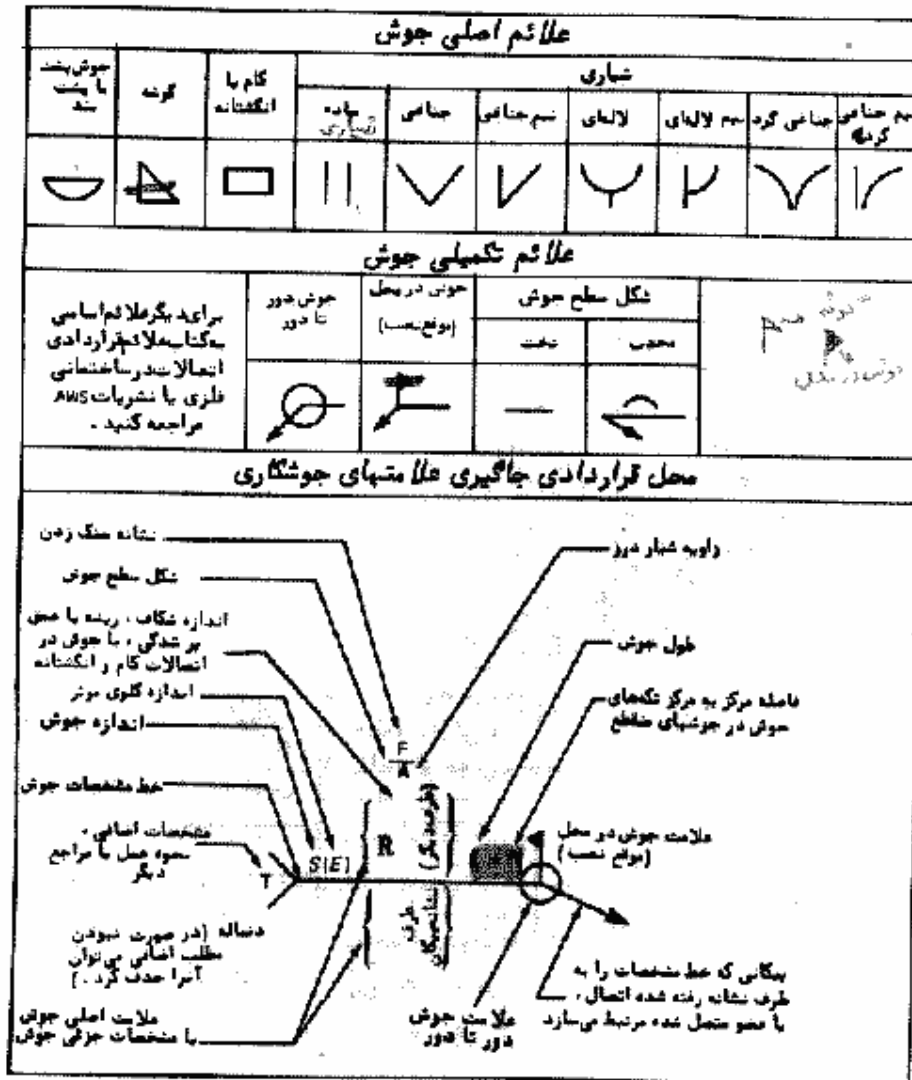 علائم اصلی جوش
جوش پشت
یا پشت
بند
گوشه
کام یا
انگشتانه
شیاری
ساده
جناغی
نیم جناغی
لاله‌ای
نیم لاله‌ای
جناغی گرد
نیم جناغی
گرد
علائم تکمیلی جوش
برای دیگر علائم اساسی
به کتاب علائم قراردادی
اتصالات در ساختمانی
فلزی یا نشریات AWS
مراجعه کنید .
جوش دور
تا دور
جوش در محل
(موقع نصب)
شکل سطح جوش
تخت
محدب
محل قراردادی جاگیری علامتهای جوشکاری
نشانه سنگ زدن
شکل سطح جوش
اندازه شکاف ، ریشه یا عمق
پر شدگی ، یا جوش در
اتصالات کام و انگشتانه
اندازه گلوی موثر
اندازه جوش
خط مشخصات جوش
مشخصات اضافی ،
نحوه عمل یا مراجع
دیگر
دنباله (در صورت نبودن
مطلب اضافی می‌توان
آنرا حذف کرد .)
علامت اصلی جوش
یا مشخصات جزئی جوش
زاویه شیار درز
طول جوش
فاصله مرکز به مرکز تکه‌های
جوش در جوشهای منقطع
علامت جوش در محل
(موقع نصب)
F
A
R
(طرف دیگر)
S(E)
T
طرف
نشانه پیکان
علامت جوش
دور تا دور
پیکانی که خط مشخصات را به
طرف نشانه رفته شده اتصال ،
یا عضو متصل شده مرتبط می‌سازد